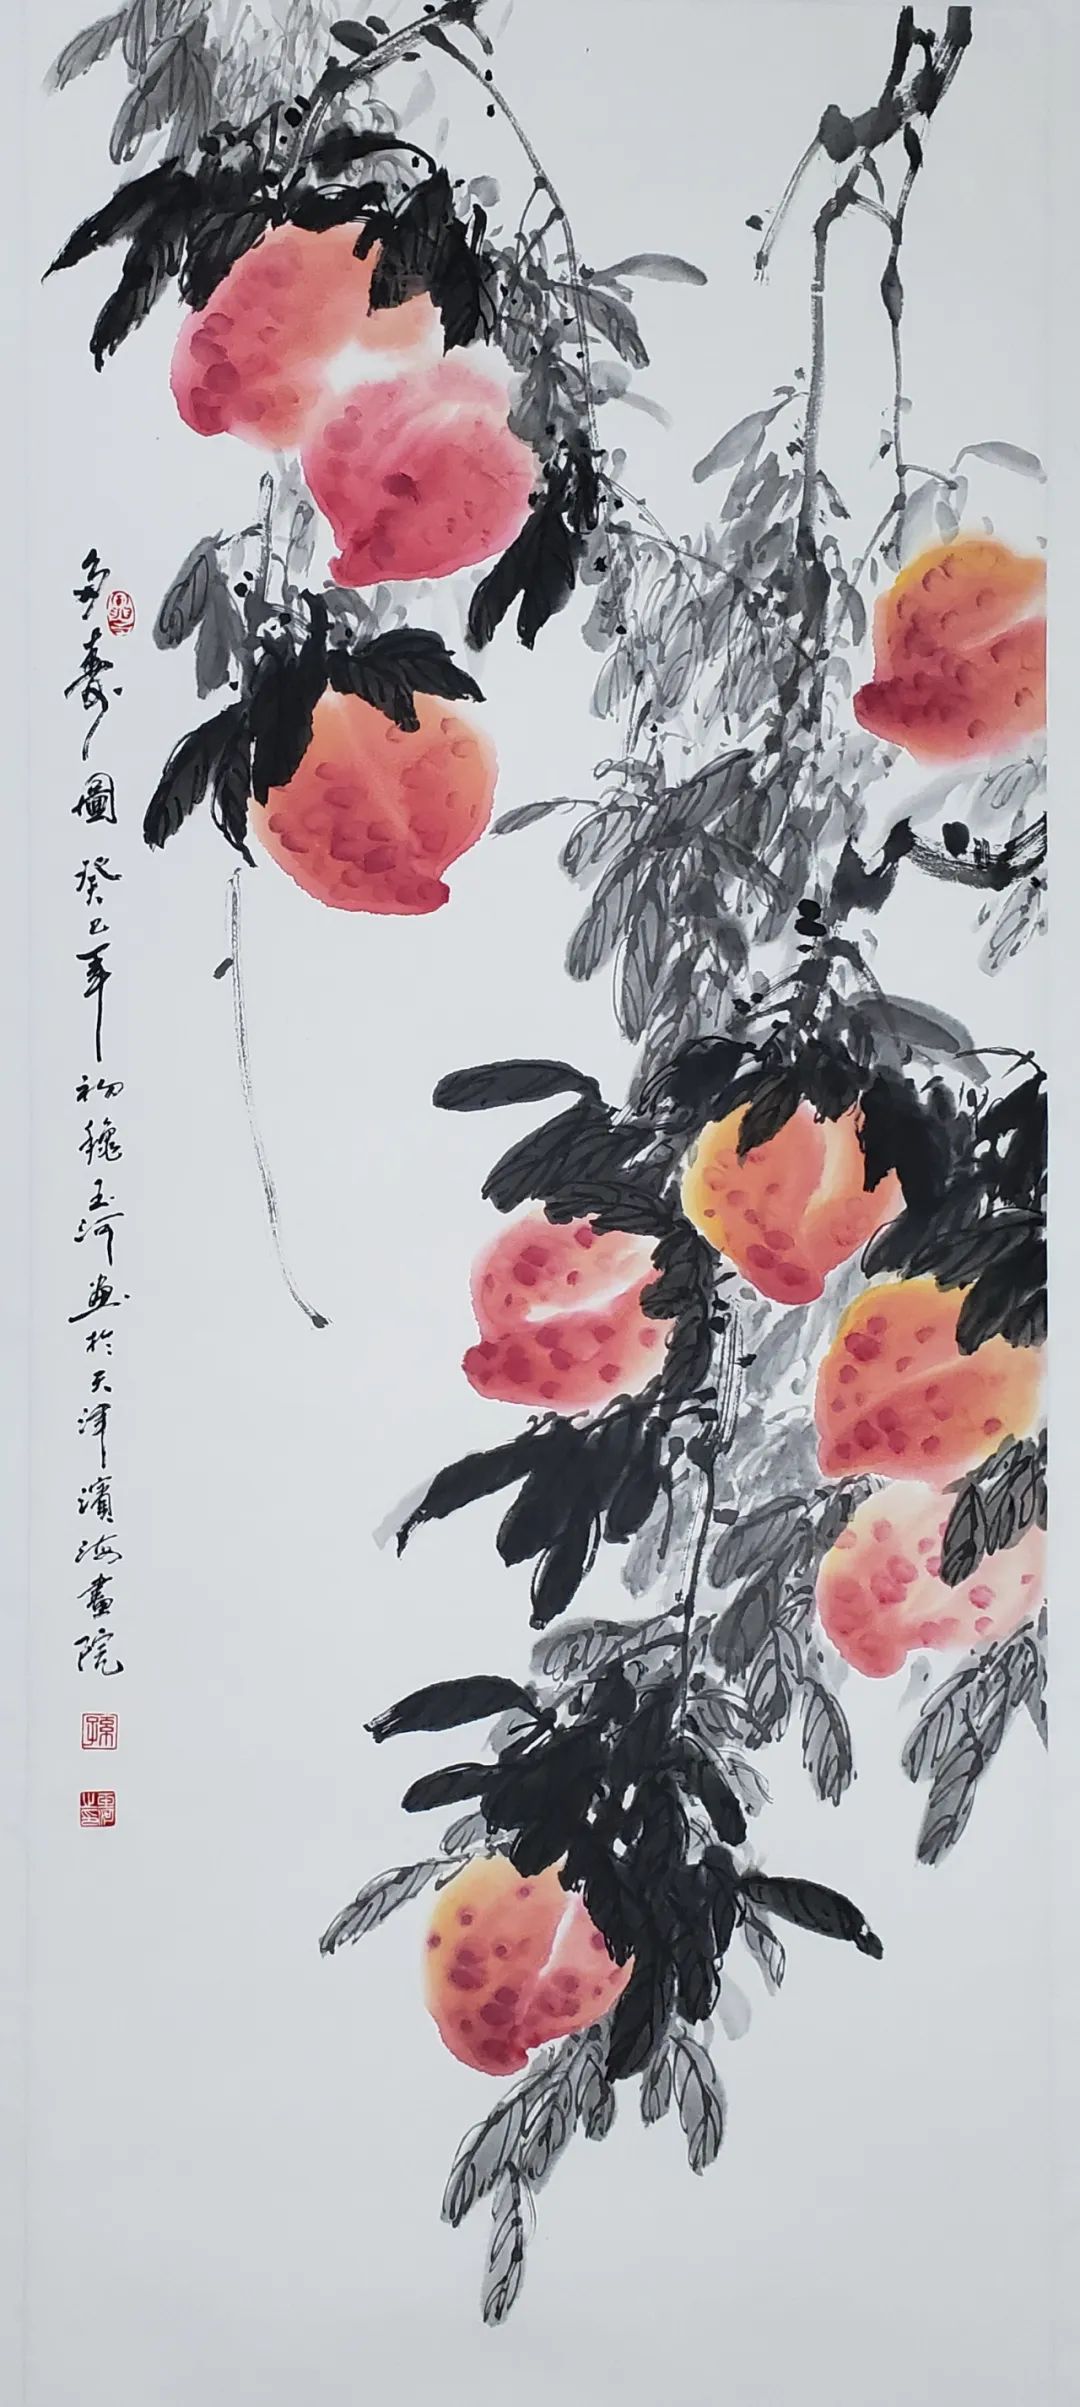 多壽圖 癸巳年初龝玉河畫於天津濱海畫院
孫